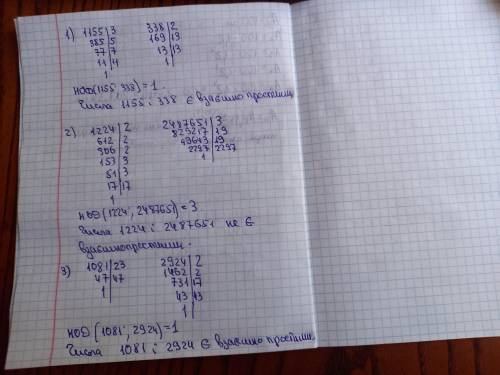 1) 1155|3 338|2
385|5 169|13
77|7 13|13
11|4 1|
1|
НОД(1155; 338)=1.
Числа 1155 і 338 є взаємно простими
2) 1224|2 2487651|3
612|2 829217|19
306|2 43643|19
153|3 2297|2297
51|3 1|
17|17
1|
НОД(1224; 2487651)=3
Числа 1224 і 2487651 не є
взаємнопростими.
3) 1081|23 2924|2
47|47 1462|2
1| 731|17
43|43
1|
НОД(1081; 2924)=1
Числа 1081 і 2924 є взаємно простими